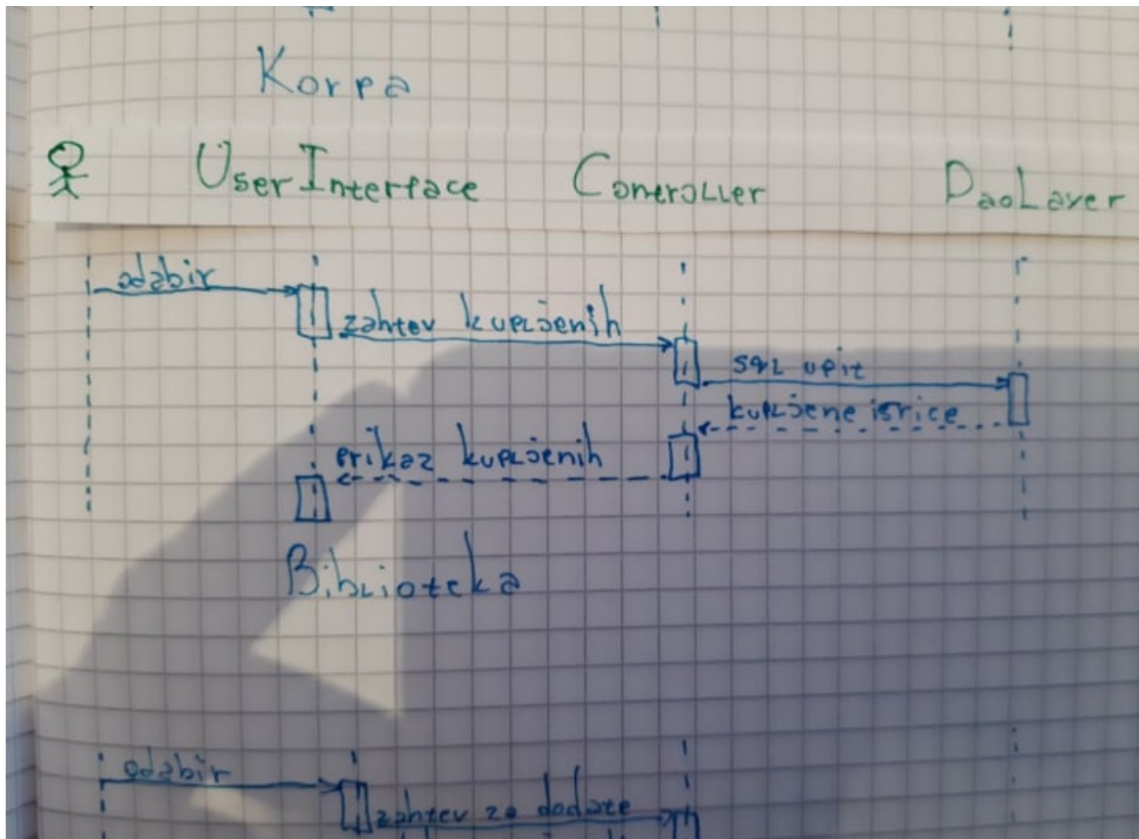 Korpa
UserInterface Controller DaoLayer
odabir
zahtev kupljenih
sql upit
kupljene igrice
prikaz kupljenih
Biblioteka
odabir
zahtev za dodate